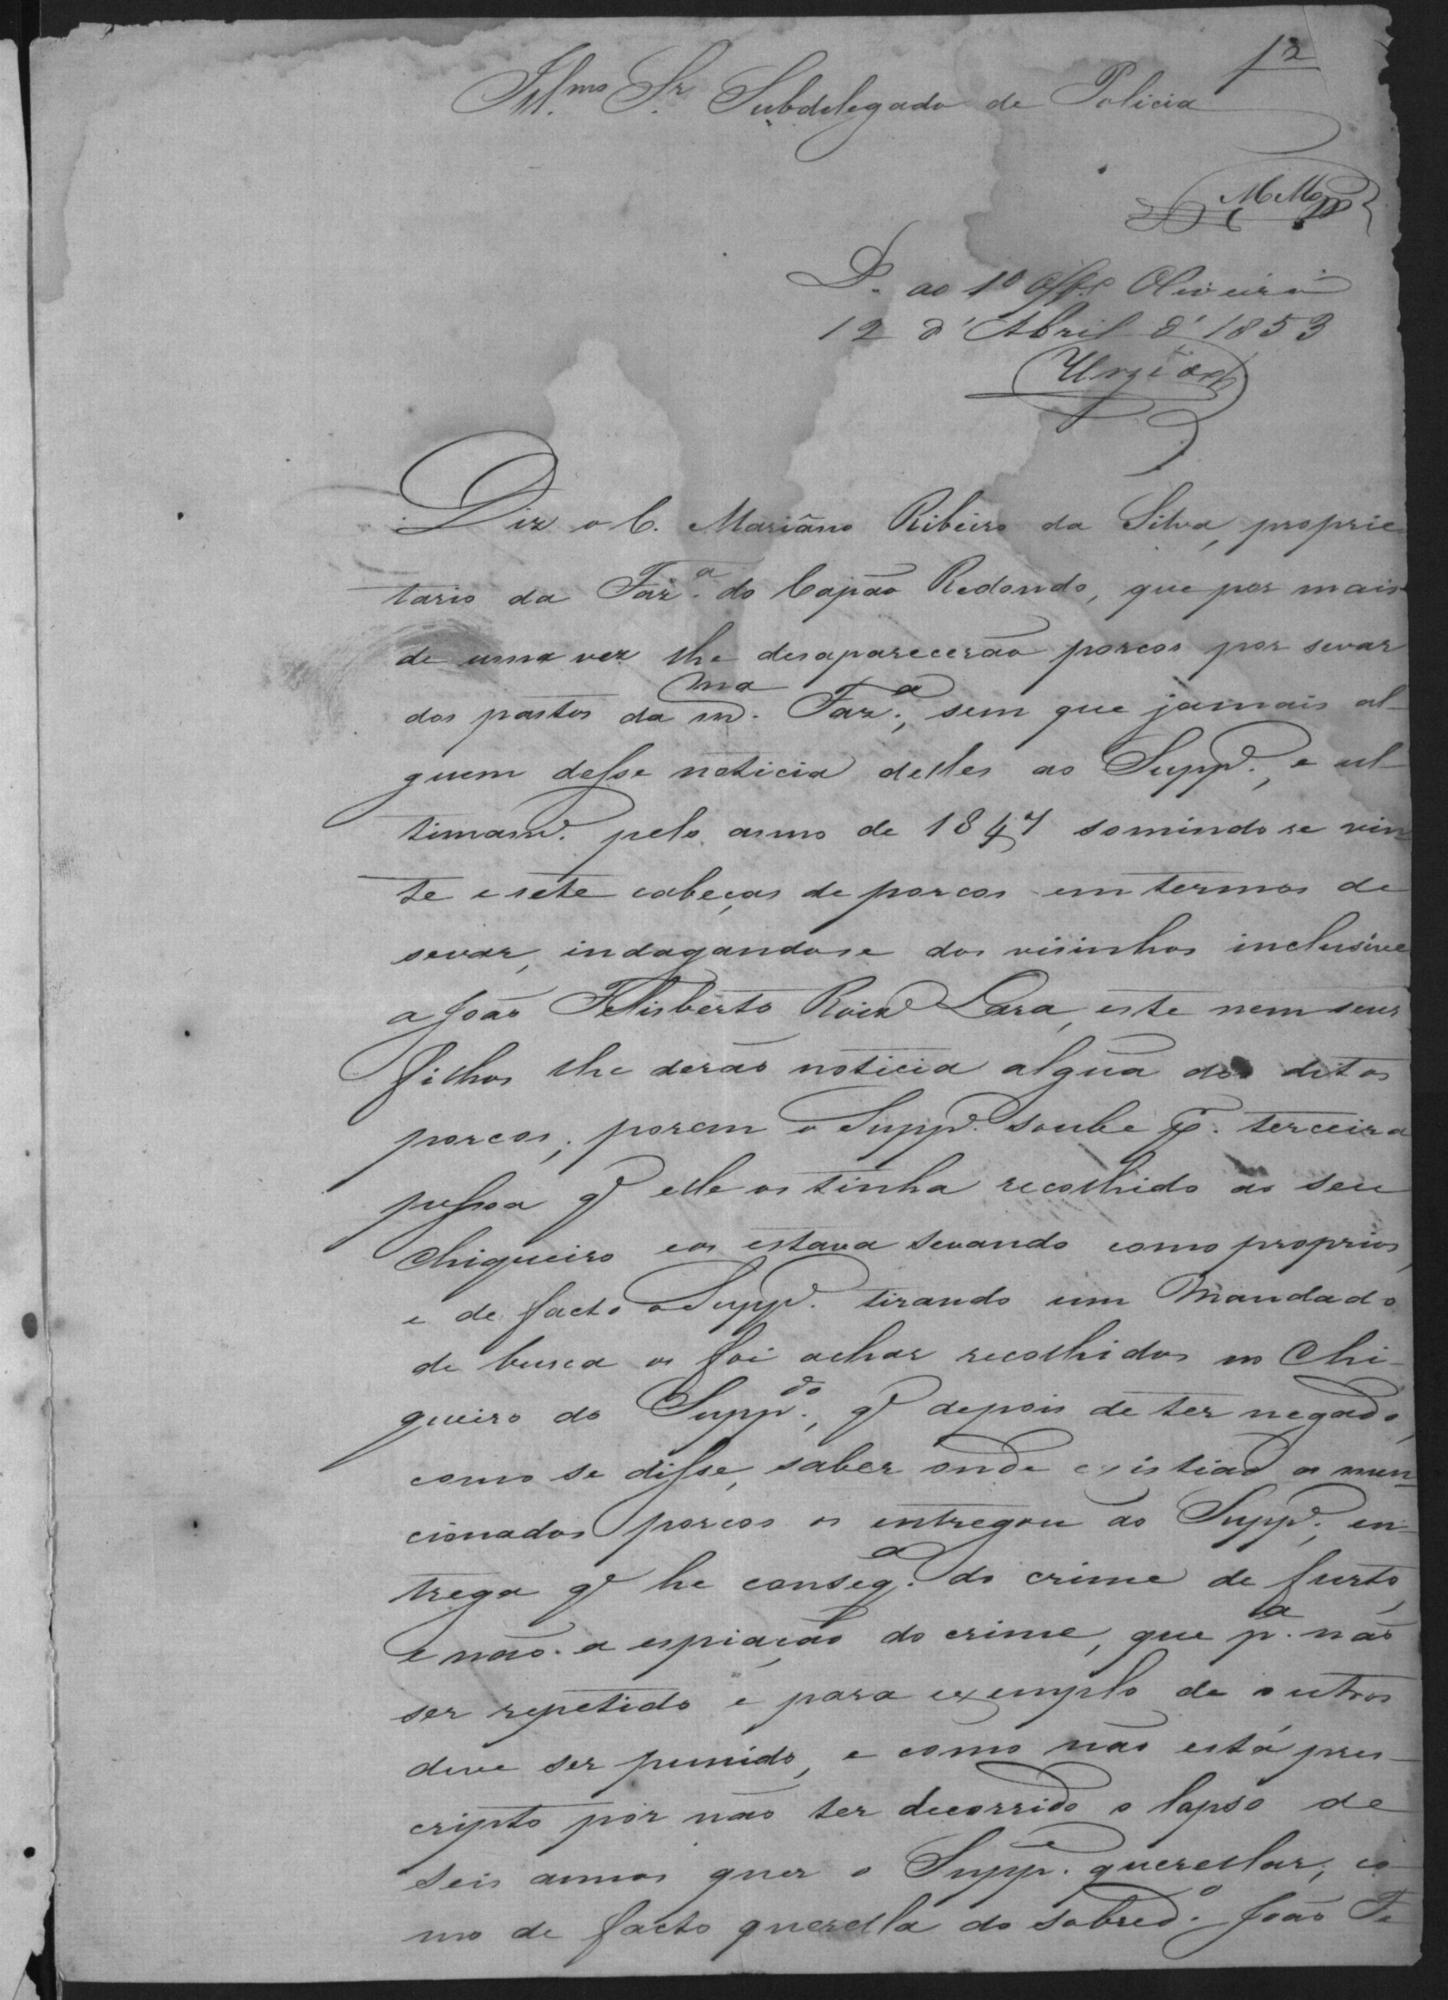 12
Ill.mo Sr. Subdelegado de Policia
D. ao 1º Off.e Oliveira
12 d'Abril d'1853
Diz o C. Mariano Ribeiro da Silva, proprie
tario da Faz.a do Capão Redondo, que por mais
de uma vez lhe desaparecerão porcos por sevar
dos pastos da m.ma Faz.a, sem que jamais al-
guem desse noticia delles ao Supp.e, e ul-
timam.e pelo anno de 1847 somindo se vin
te e sete cabeças de porcos em termos de
sevar, indagandose dos visinhos inclusive
a João Felisberto Roiz Lara, este nem seus
filhos lhe derão noticia algũa dos ditos
porcos; porem o Supp.e soube p. terceira
pessoa q.e elle os tinha recolhido ao seu
chiqueiro eos estava sevando como proprios,
e de facto o Supp.e tirando um Mandado
de busca os foi achar recolhidos no Chi-
queiro do Supp.do, q.e depois de ter negado,
como se disse, saber onde existião os men
cionados porcos os entregou ao Supp.e; en-
trega q.e he conseq.a do crime de furto,
e não a espiação do crime, que p.a não
ser repetido e para exemplo de outros
deve ser punido, e como não está pres-
cripto por não ter decorrido o lapso de
seis annos quer o Supp.e querellar, co-
mo de facto querella do sobred.o João Fe